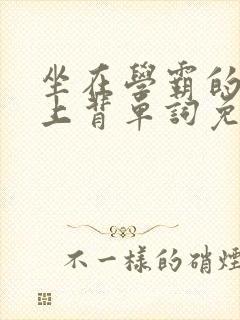 坐在學霸的
上背單詞免
不一樣的硝煙